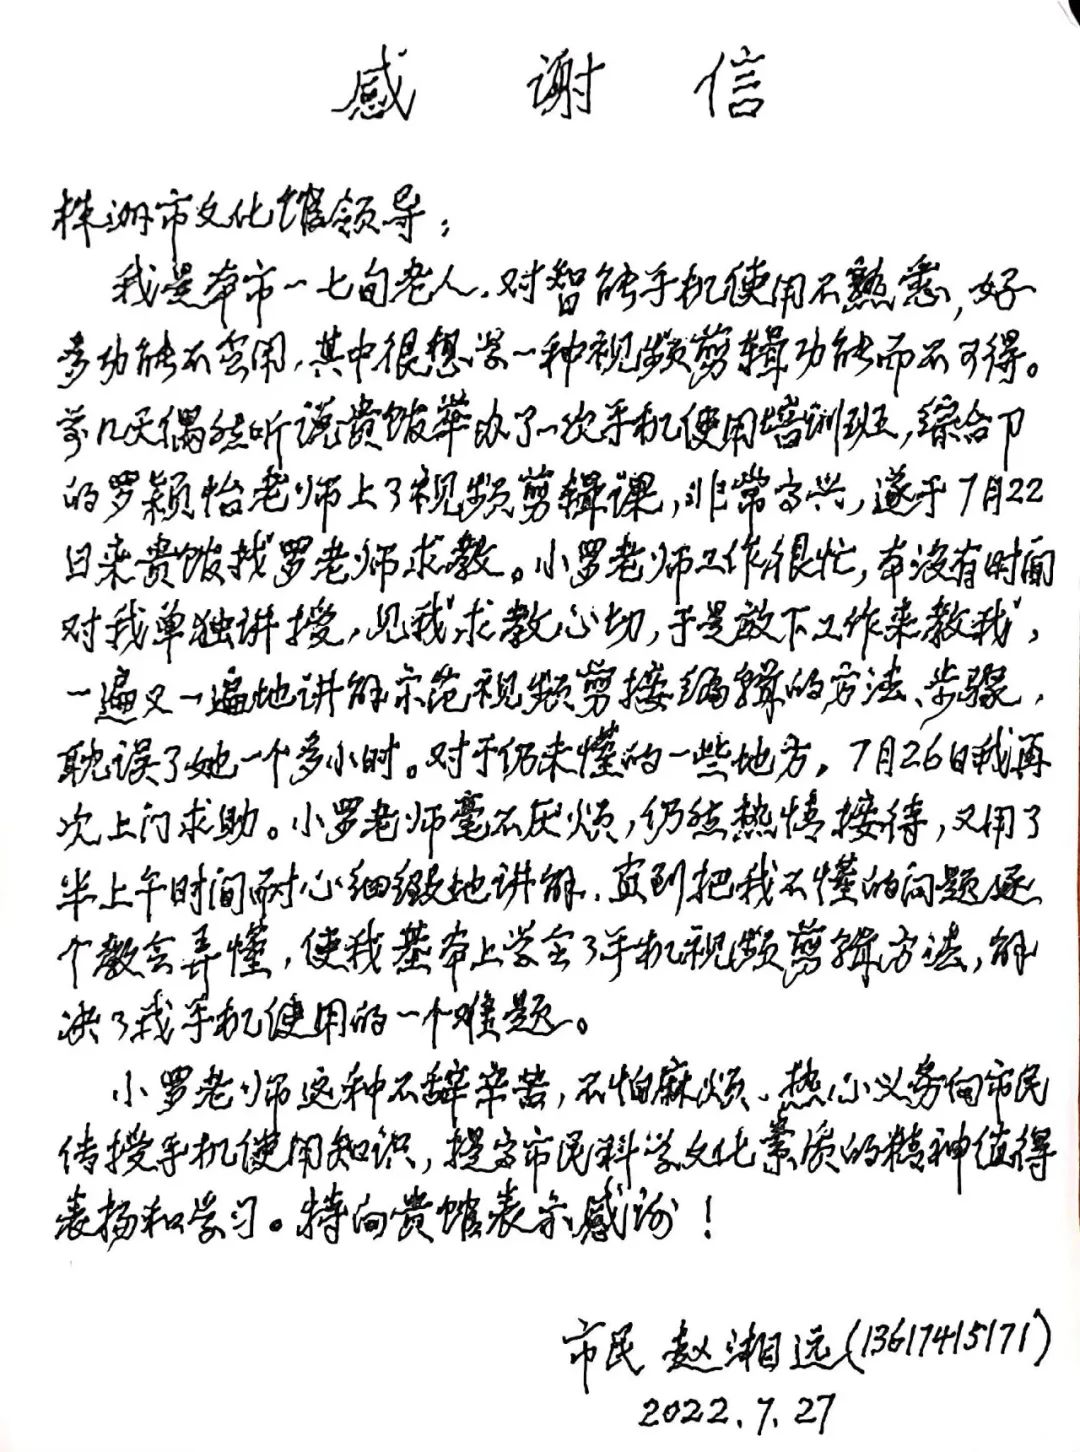 感谢信
株洲市文化馆领导：
我是本市一七旬老人，对智能手机使用不熟悉，好
多功能不会用，其中很想学一种视频剪辑功能而不可得。
前几天偶然听说贵馆举办了一次手机使用培训班，综合卩
的罗颖怡老师上了视频剪辑课，非常高兴，遂于7月22
日来贵馆找罗老师求教。小罗老师工作很忙，本没有时间
对我单独讲授，见我求教心切，于是放下工作来教我，
一遍又一遍地讲解示范视频剪接编辑的方法、步骤，
耽误了她一个多小时。对于仍未懂的一些地方，7月26日我再
次上门求助。小罗老师毫不厌烦，仍然热情接待，又用了
半上午时间耐心细致地讲解，直到把我不懂的问题逐
个教会弄懂，使我基本上学会了手机视频剪辑方法，解
决了我手机使用的一个难题。
小罗老师这种不辞辛苦，不怕麻烦、热心义务向市民
传授手机使用知识，提高市民科学文化素质的精神值得
表扬和学习。特向贵馆表示感谢！
市民 赵湘远(13617415171)
2022.7.27